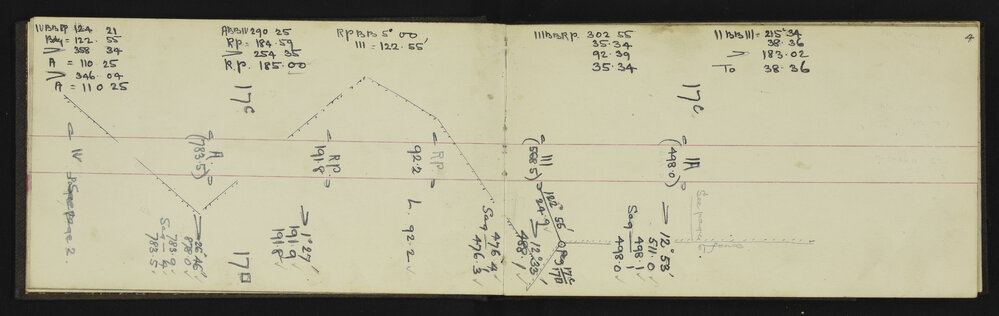 IVBBRP 124 21
Bdy = 122. 55
358 34
A = 110 25
346. 04
A = 110 25
ABBIV 290 25
RP = 184. 59
254 35
R.P. 185. 00
RPBB 5° 00
III = 122. 55'
IIIBBRP. 302 55
35. 34
92. 39
35. 34
IIBBIII = 215° 34
38. 36
183. 02
To 38. 36
4
17c
17c
IV
See page 2
A
(783.5)
26° 46'
878.0
783.9
Sag 4
783.5
17D
RP
191.8
1° 27'
191.9
191.8
RP
92.2
L. 92.2
III
(508.5)
122° 55'
24.9
476.4
Sag 1
476.3
12° 33'
488.1
IIA
(498.0)
12° 53'
511.0
498.1
Sag 1
498.0
See page 6